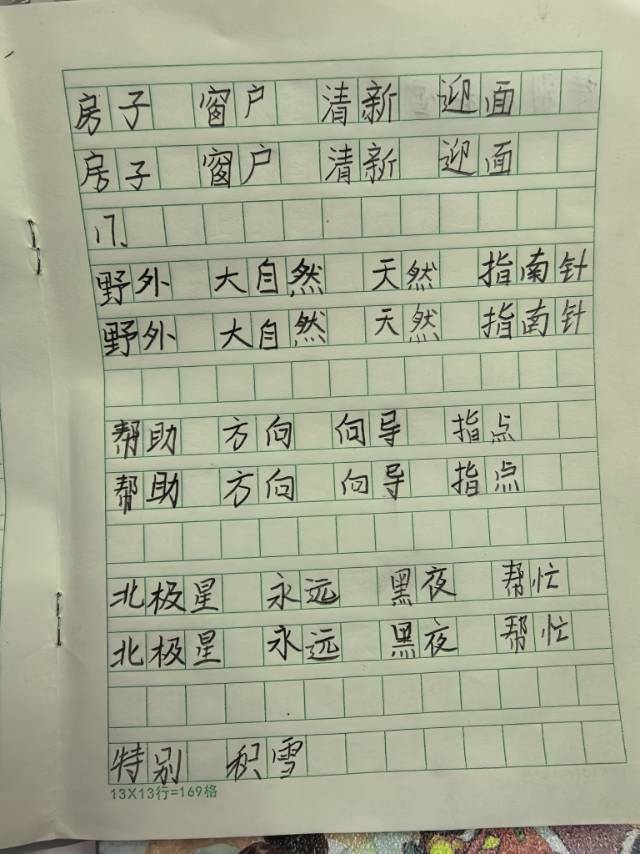 房子 窗户 清新 迎面
房子 窗户 清新 迎面
门
野外 大自然 天然 指南针
野外 大自然 天然 指南针
帮助 方向 向导 指点
帮助 方向 向导 指点
北极星 永远 黑夜 帮忙
北极星 永远 黑夜 帮忙
特别 积雪
13X13行=169格